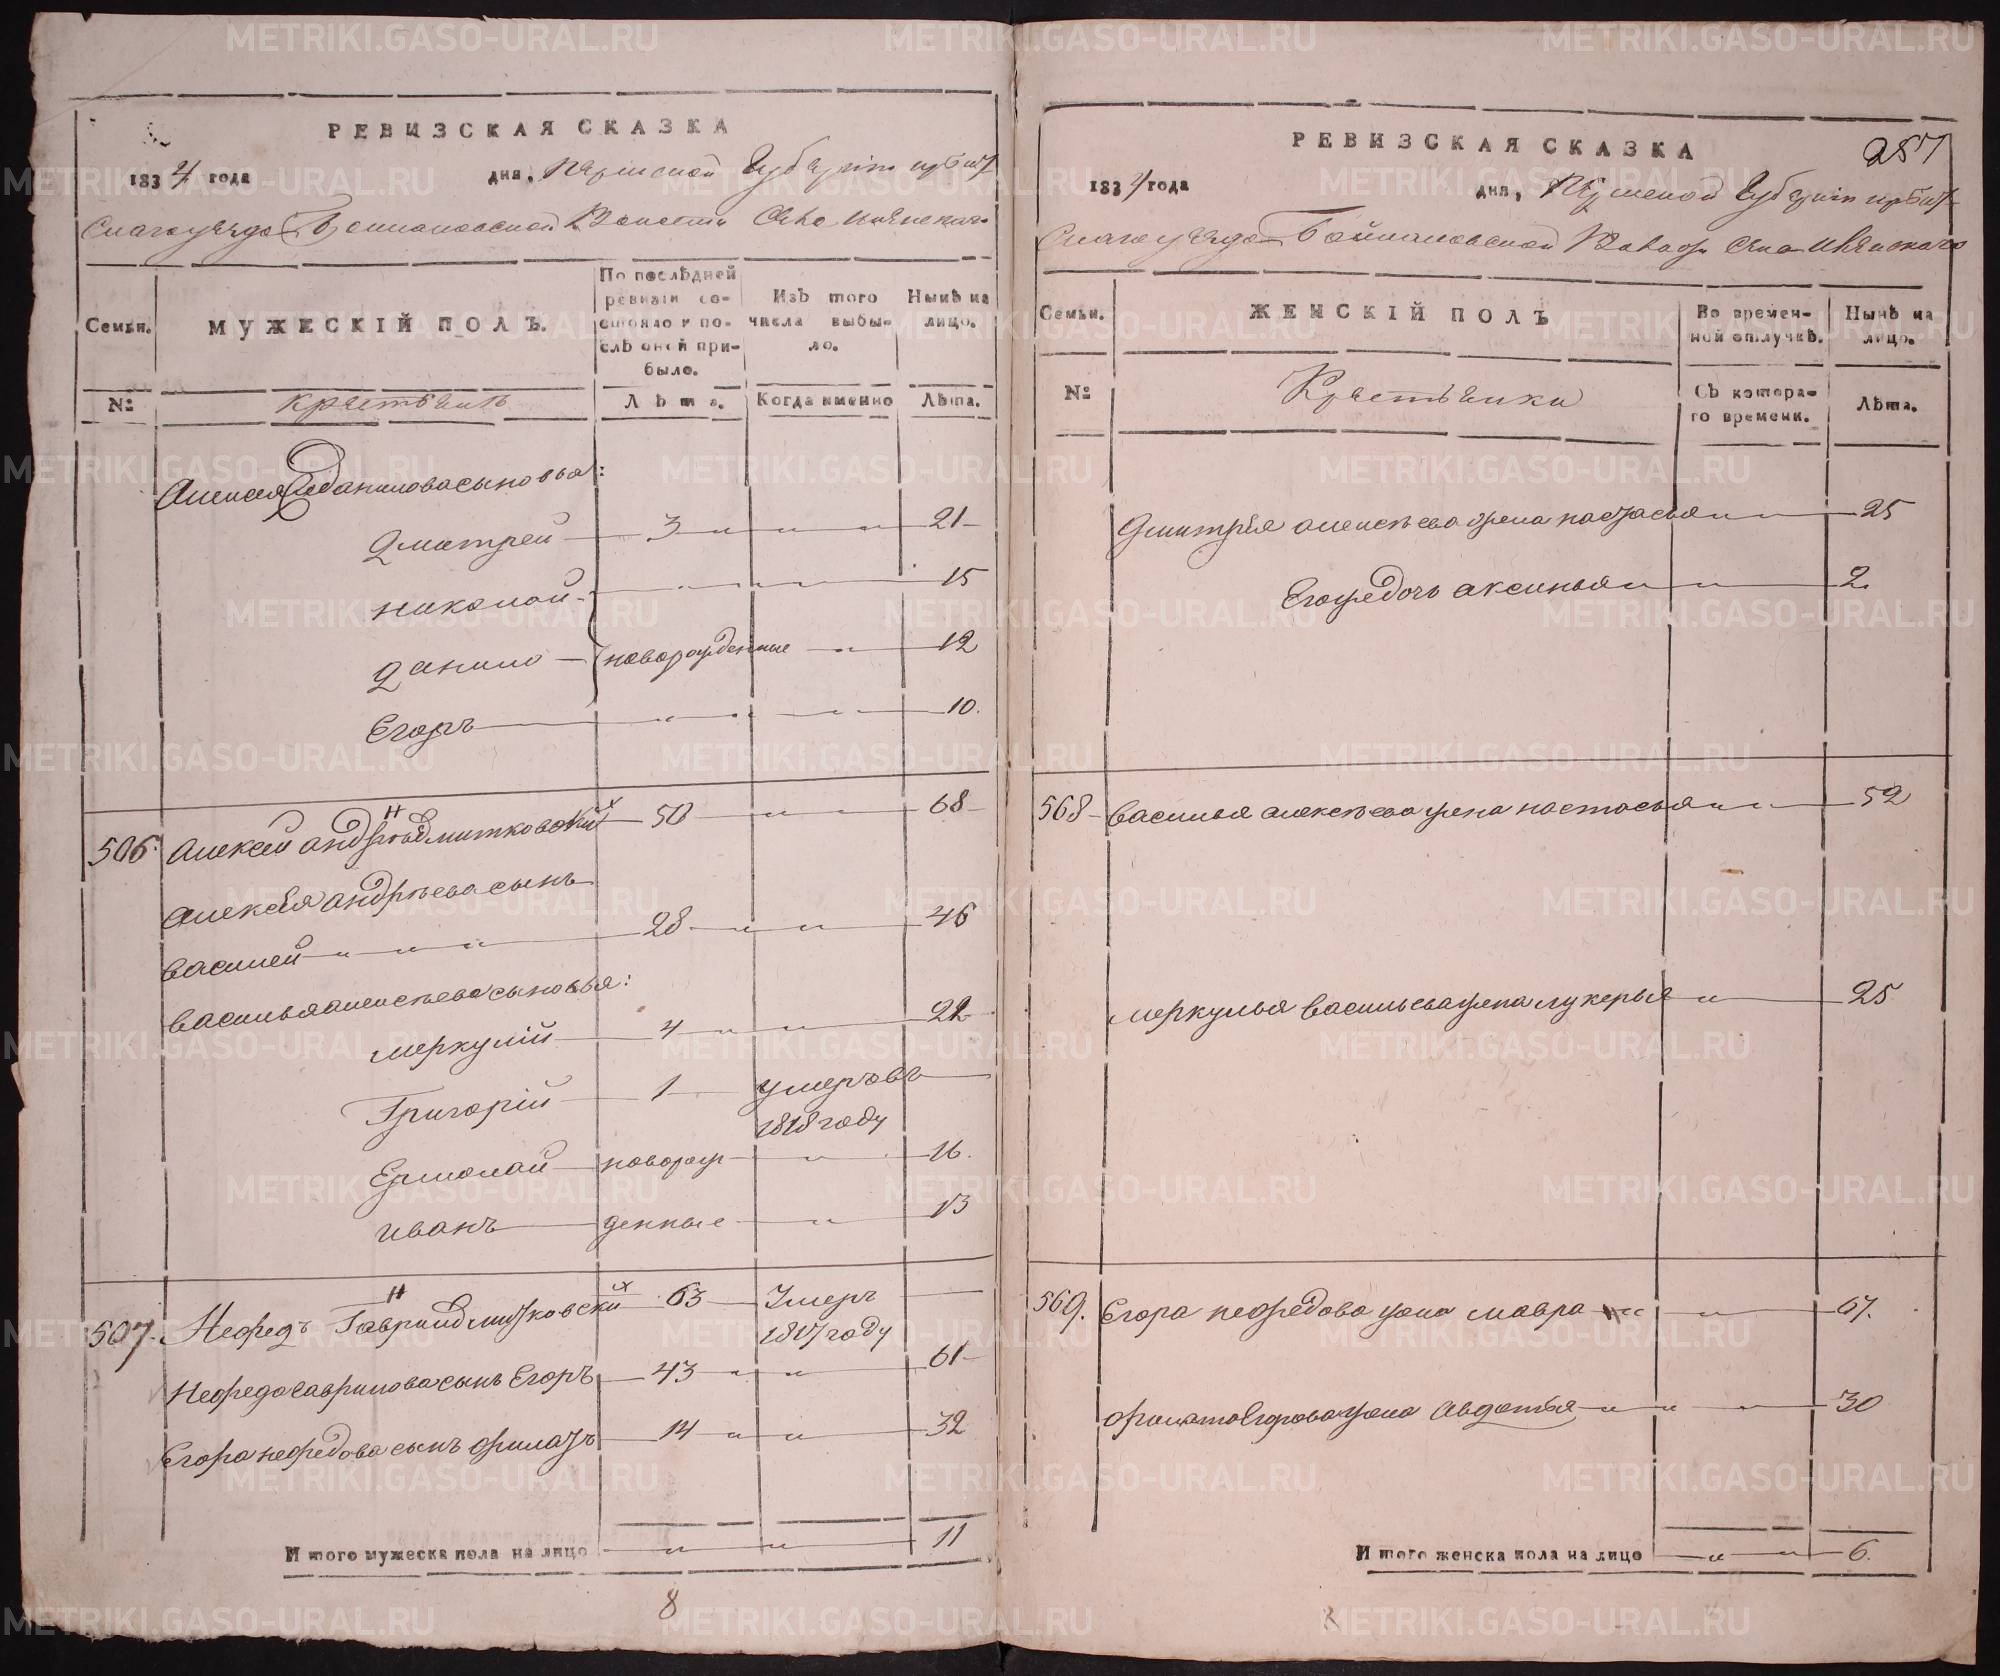 РЕВИЗСКАЯ СКАЗКА
1834 года дня, Пермской Губерніи ирбит
скаго уезда Волости Села
Семьи. МУЖЕСКІЙ ПОЛЪ. По послѣдней ревизіи состояло и послѣ оней прибыло. Изъ того числа выбыло. Нынѣ на лицо.
№ крестьянъ Лѣта. Когда именно Лѣта.
Алексея Данилова сыновья:
Дмитрей 3 21
николай 15
данило новорожденные 12
Егоръ 10.
506. Алексей Дмитковский 50 68
Алексѣя андрѣева сынъ
василей 28 46
василья алексѣева сыновья:
меркулій 4 22
Григорій 1 умеръ въ
1818 году
Ермолай новорож 16.
иванъ денные 13
507. Нефедъ Гаврил Дмитковский 63 Умеръ
1817 году
Нефеда гаврилова сынъ Егоръ 43 61
Егора нефедова сынъ филатъ 14 32
Итого мужеска пола на лицо 11
8
РЕВИЗСКАЯ СКАЗКА 257
1834 года дня, Пермской Губерніи ирбит
скаго уезда Села
Семьи. ЖЕНСКІЙ ПОЛЪ Во временной отлучкѣ. Нынѣ на лицо.
№ Крестьянки Съ котораго времени. Лѣта.
Дмитрѣя алексѣева жена настасья 25
Егож дочь аксинья 2
568 василья алексѣева жена настасья 52
меркулья васильева жена лукерья 25
569. Егора нефедова жена мавра 67.
филата Егорова жена Авдотья 30
Итого женска пола на лицо 6.
METRIKI.GASO-URAL.RU